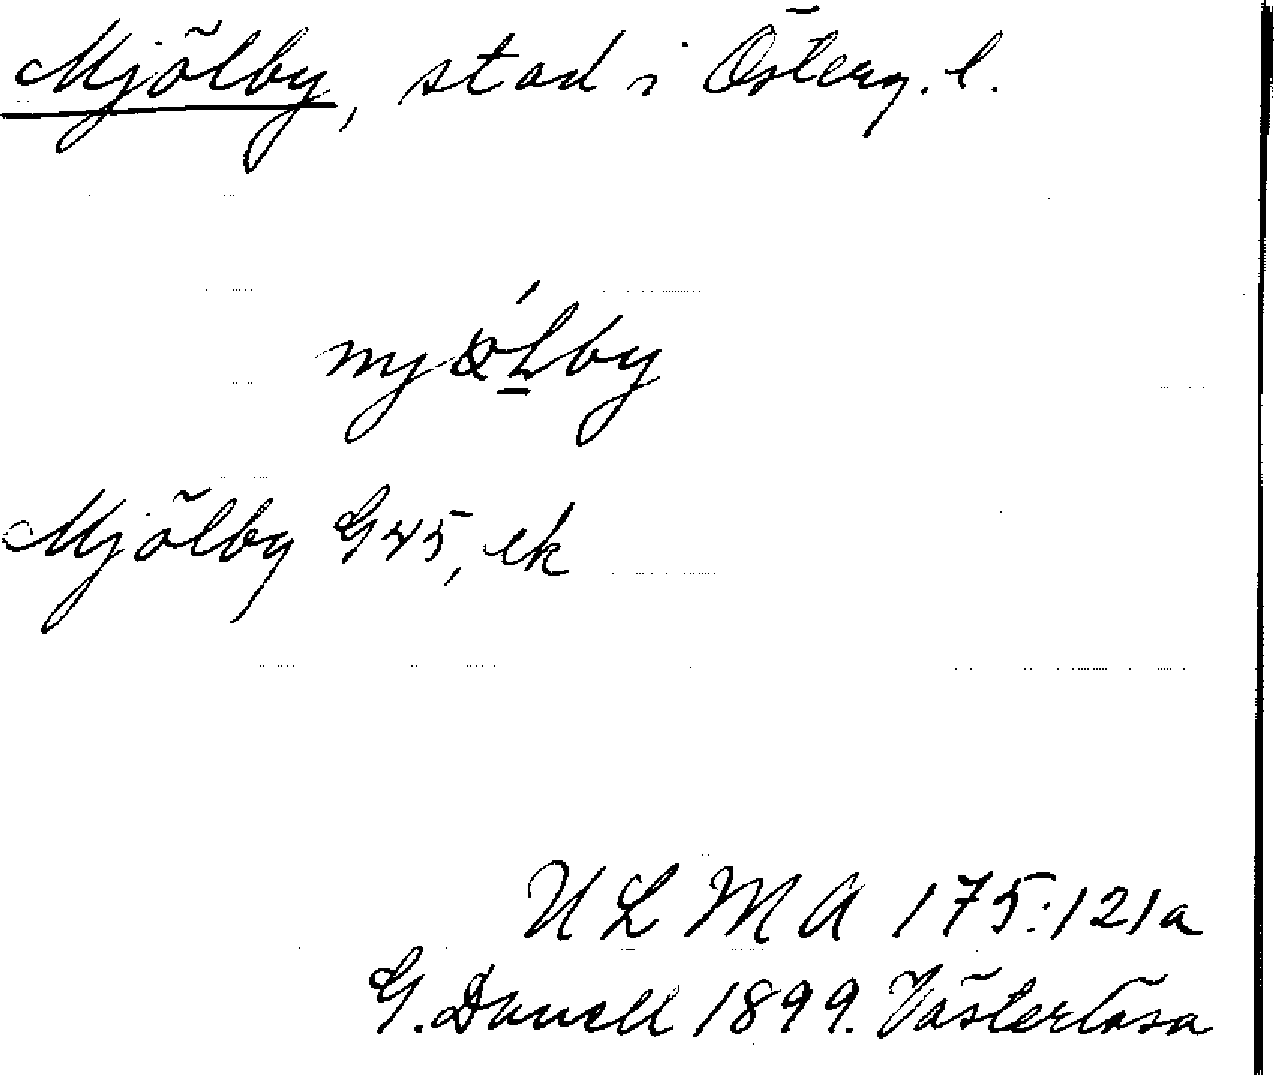 Mjölby, stad i Österg. l.
Mjölby G 45, ek
ULMA 175:121a
G. Danell 1899. Västerlösa